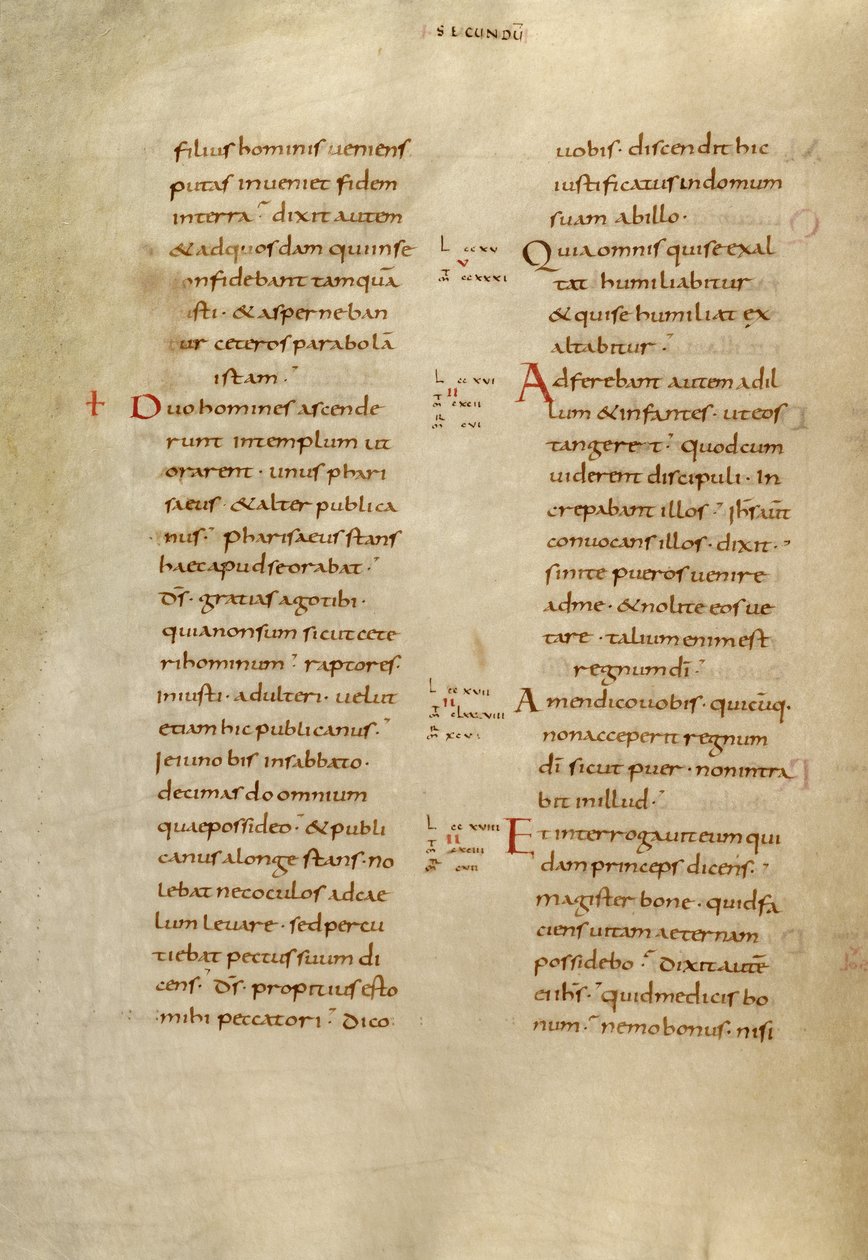 SECUNDŪ
filius hominis ueniens
putas inueniet fidem
interra dixit autem
& adquosdam quiinse
onfidebant tamquā
isti · & asperneban
ur ceteros parabolā
istam ·
+ Duo homines ascende
runt intemplum ut
orarent · unus phari
saeus · & alter publica
nus · pharisaeus stans
haec apud se orabat ·
d̄s · gratias ago tibi ·
quia non sum sicut cete
ri hominum raptores ·
iniusti · adulteri · uelut
etiam hic publicanus ·
Ieiuno bis insabbato ·
decimas do omnium
quae possideo · & publi
canus alonge stans · no
lebat nec oculos ad cae
lum leuare · sed percu
tiebat pectus suum di
cens · d̄s · propitius esto
mihi peccatori · dico
L ccxv
v
m ccxxxi
L ccxvi
II
m cxcii
m cvi
L ccxvii
II
m clxxxviii
m xcvi
L ccxviii
II
m cxciii
m cvii
uobis · discendit hic
iustificatus in domum
suam abillo ·
Quia omnis qui se exal
tat humiliabitur
& qui se humiliat ex
altabitur ·
Adferebant autem ad il
lum & infantes · ut eos
tangeret · quod cum
uiderent discipuli · In
crepabant illos · Ih̄s aūt
conuocans illos · dixit ·
sinite pueros uenire
ad me · & nolite eos ue
tare · talium enim est
regnum dī ·
Amen dico uobis · quicūq·
non acceperit regnum
dī sicut puer · non intra
bit in illud ·
Et interrogauit eum qui
dam princeps dicens ·
magister bone · quid fa
ciens uitam aeternam
possidebo · Dixit autē
ei ih̄s · quid me dicis bo
num · nemo bonus · nisi